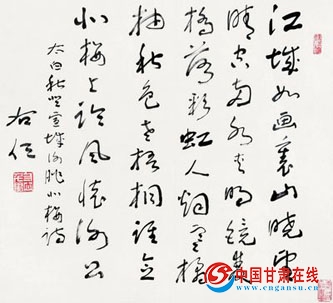 江城如画裏山晓望
晴空两水夹明镜双
橋落彩虹人烟寒橘
柚秋色老梧桐谁念
北楼上临风怀谢公
太白秋登宣城谢朓北楼诗
右任
中国甘肃在线
www.cngansu.cn